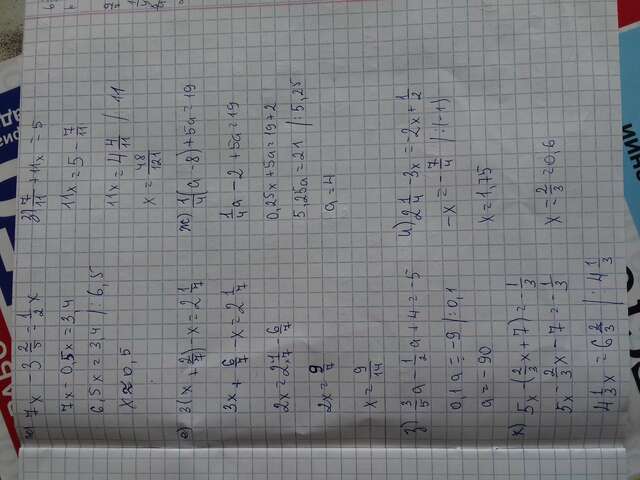 7x - 3 2/5 = 1/2 x
7x - 0,5x = 3,4
6,5x = 3,4 | : 6,5
x ≈ 0,5
з) 7/11 + 11x = 5
11x = 5 - 7/11
11x = 4 4/11 | 11
x = 48/121
е) 3(x + 2/7) - x = 2 1/7
3x + 6/7 - x = 2 1/7
2x = 2 1/7 - 6/7
2x = 9/7
x = 9/14
ж) 1/4(a - 8) + 5a = 19
1/4a - 2 + 5a = 19
0,25x + 5a = 19 + 2
5,25a = 21 | : 5,25
a = 4
з) 3/5a - 1/2a + 4 = -5
0,1a = -9 | : 0,1
a = -90
и) 2 1/4 - 3x = -2x + 1/2
-x = -7/4 | : (-1)
x = 1,75
к) 5x - (2/3x + 7) = -1/3
5x - 2/3x - 7 = -1/3
4 1/3x = 6 2/3 | : 4 1/3
x = 2/3 = 0,6